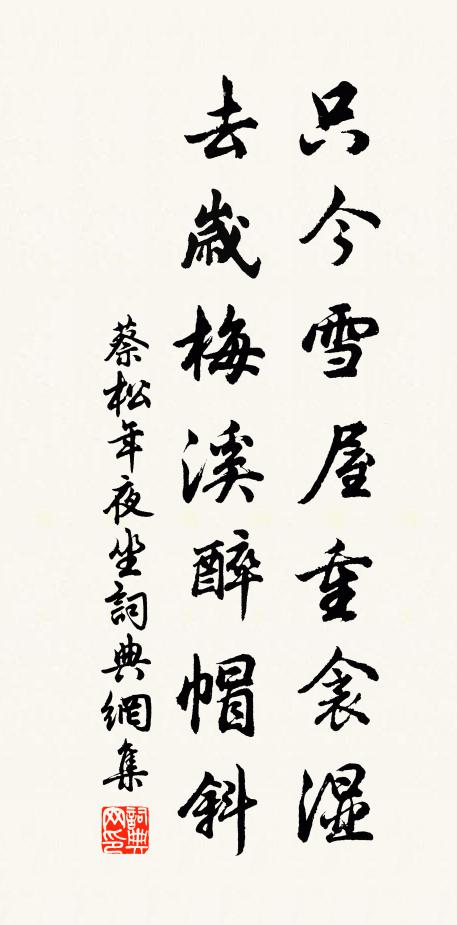 只今雪屋重衾湿
去歲梅溪醉帽斜
蔡松年夜坐詞典網集
詞典网印